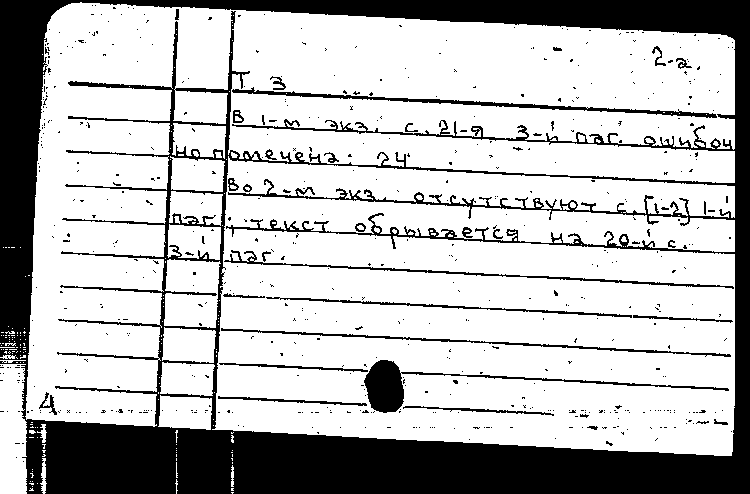 2-а.
Т. 3
В 1-м экз. с. 21-я 3-й паг. ошибоч
но помечена: 24
Во 2-м экз. отсутствуют с. [1-2] 1-й
паг.; текст обрывается на 20-й с.
3-й паг.
4